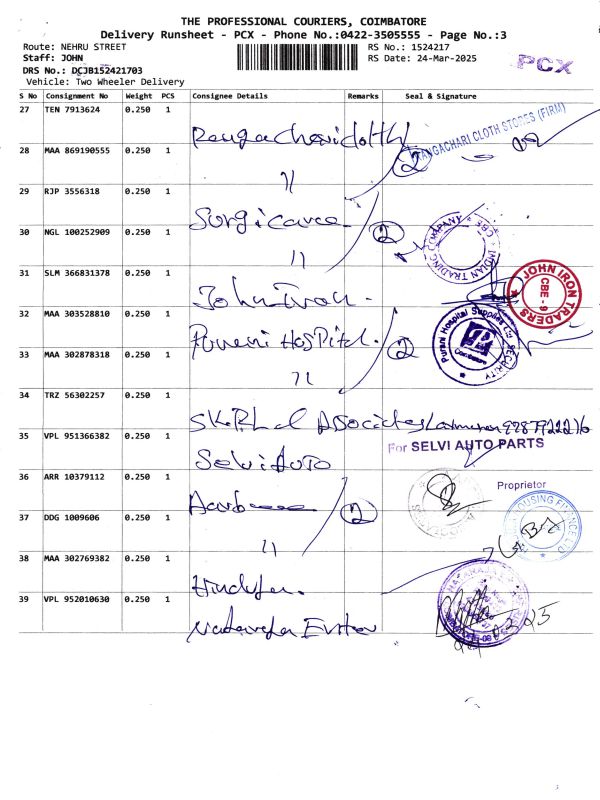 THE PROFESSIONAL COURIERS, COIMBATORE
Delivery Runsheet - PCX - Phone No.:0422-3505555 - Page No.:3
Route: NEHRU STREET
RS No.: 1524217
Staff: JOHN
RS Date: 24-Mar-2025
PCX
DRS No.: DCJB152421703
Vehicle: Two Wheeler Delivery
S No Consignment No Weight PCS Consignee Details Remarks Seal & Signature
27 TEN 7913624 0.250 1
RANGACHARI CLOTH STORES (FIRM)
28 MAA 869190555 0.250 1
2
"
29 RJP 3556318 0.250 1
Surgicare
30 NGL 100252909 0.250 1
2
INDIAN TRADING COMPANY * CBE *
"
31 SLM 366831378 0.250 1
John Iron
JOHN IRON TRADERS
CBE - 9
32 MAA 303528810 0.250 1
Purani Hospital
Purani Hospital Supplies
Coimbatore
SECURITY
33 MAA 302878318 0.250 1
2
"
34 TRZ 56302257 0.250 1
Associates
35 VPL 951366382 0.250 1
For SELVI AUTO PARTS
Selvi Auto
Proprietor
36 ARR 10379112 0.250 1
37 DDG 1009606 0.250 1
2
"
HOUSING FINANCE
38 MAA 302769382 0.250 1
39 VPL 952010630 0.250 1